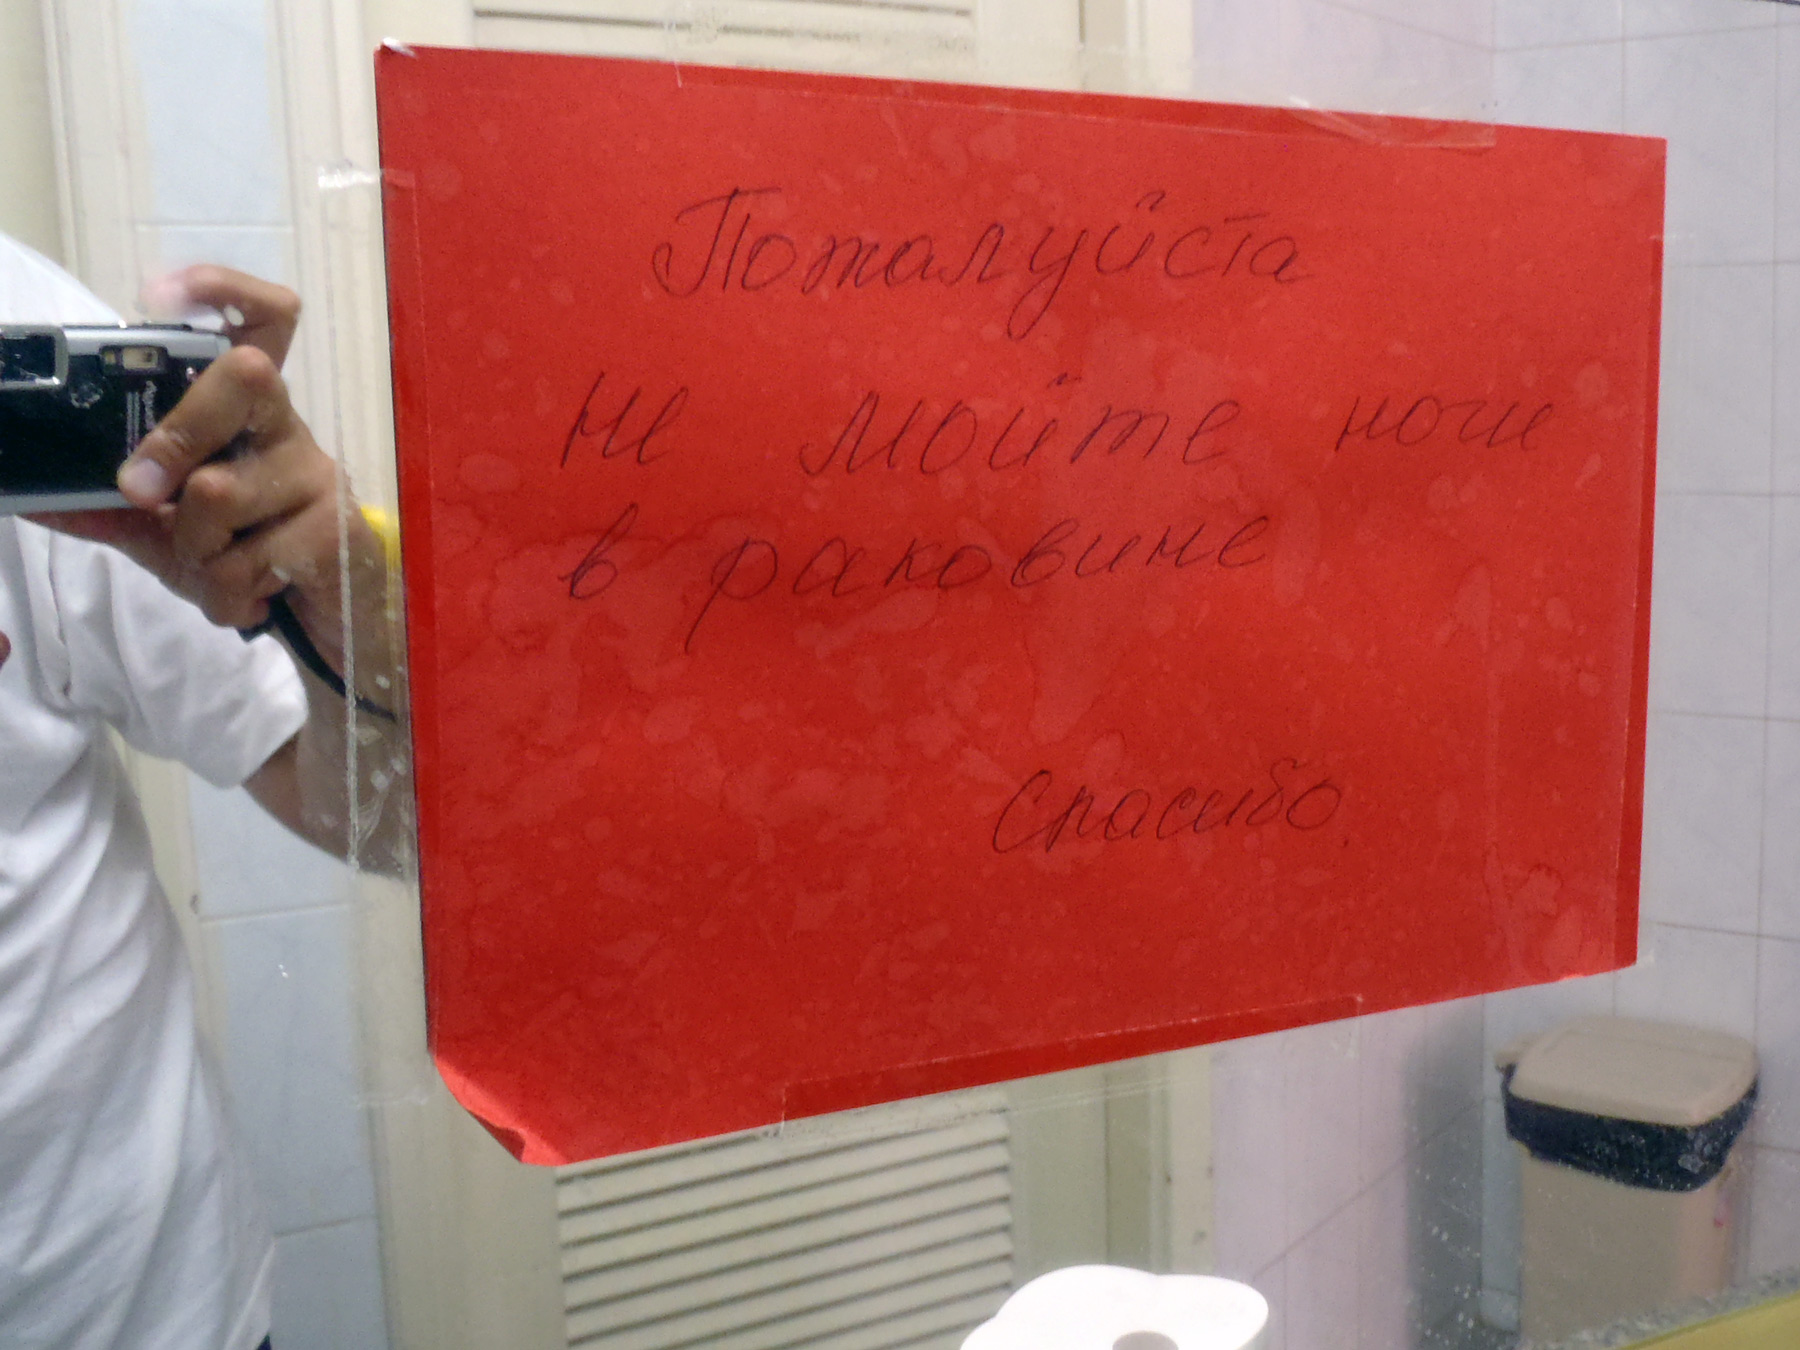 Пожалуйста
не мойте ноги
в раковине
Спасибо.